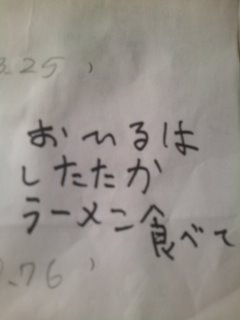 3.25,
おいるは
したたか
ラーメン食べて
.76,